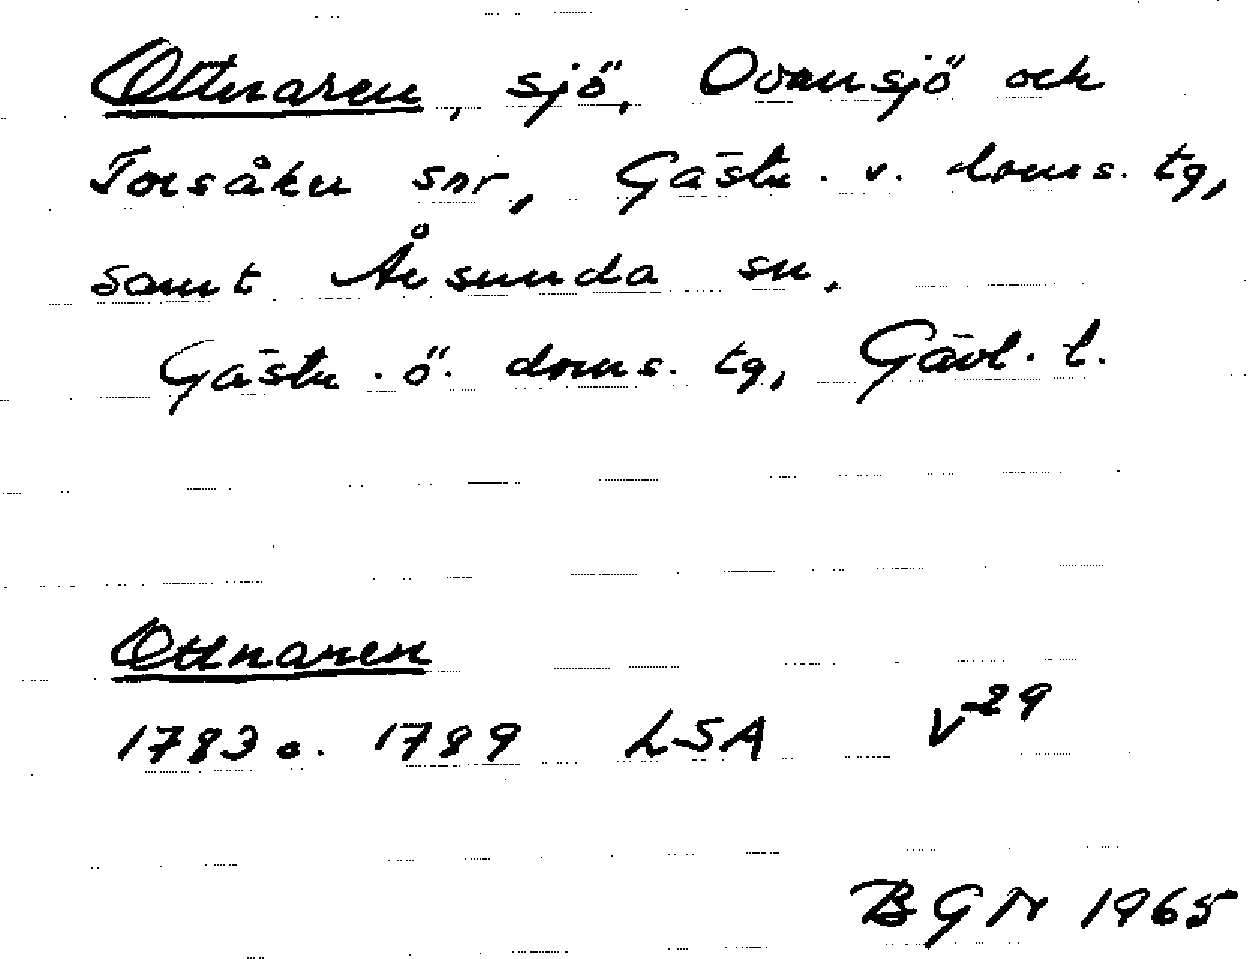 Ottnaren, sjö, Ovansjö och
Torsåker snr, Gästr. v. doms. tg,
samt Årsunda sn,
Gästr. ö. doms. tg, Gävl. l.
Ottnaren
1783 o. 1789 LSA V 29
BGN 1965